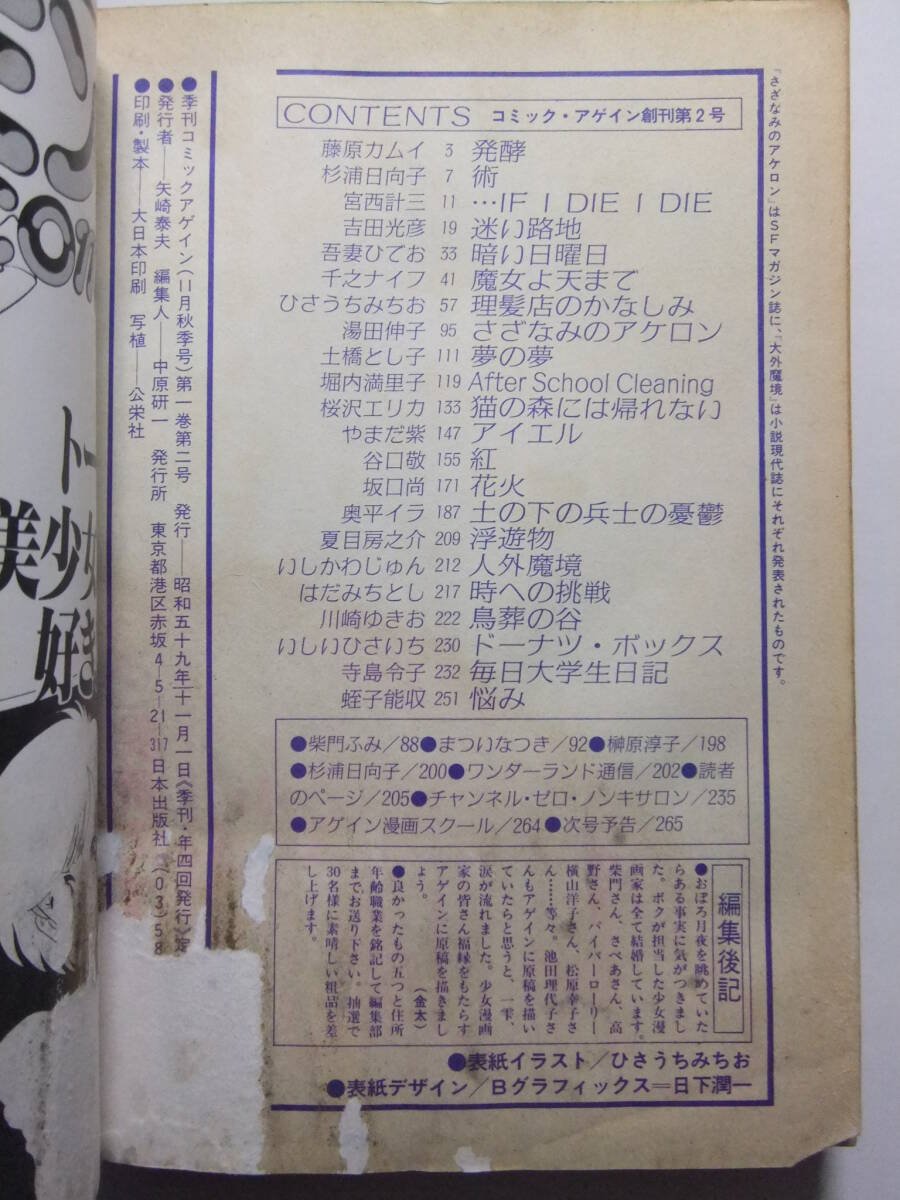 『さざなみのアケロン』はSFマガジン誌に、『大外魔境』は小説現代誌にそれぞれ発表されたものです。
CONTENTS コミック・アゲイン創刊第2号
藤原カムイ 3 発酵
杉浦日向子 7 術
宮西計三 11 …IF I DIE I DIE
吉田光彦 19 迷い路地
吾妻ひでお 33 暗い日曜日
千之ナイフ 41 魔女よ天まで
ひさうちみちお 57 理髪店のかなしみ
湯田伸子 95 さざなみのアケロン
土橋とし子 111 夢の夢
堀内満里子 119 After School Cleaning
桜沢エリカ 133 猫の森には帰れない
やまだ紫 147 アイエル
谷口敬 155 紅
坂口尚 171 花火
奥平イラ 187 土の下の兵士の憂鬱
夏目房之介 209 浮遊物
いしかわじゅん 212 人外魔境
はだみちとし 217 時への挑戦
川崎ゆきお 222 鳥葬の谷
いしいひさいち 230 ドーナツ・ボックス
寺島令子 232 毎日大学生日記
蛭子能収 251 悩み
●柴門ふみ/88●まついなつき/92●榊原淳子/198
●杉浦日向子/200●ワンダーランド通信/202●読者
のページ/205●チャンネル・ゼロ・ノンキサロン/235
●アゲイン漫画スクール/264●次号予告/265
編集後記
●おぼろ月夜を眺めていた
らある事実に気がつきまし
た。ボクが担当した少女漫
画家は全て結婚しています。
柴門さん、さべあさん、高
野さん、バイバーローリー
横山洋子さん、松原幸子さ
ん……等々。池田理代子さ
んもアゲインに原稿を描い
ていたらと思うと、一雫、
涙が流れました。少女漫画
家の皆さん福縁をもたらす
アゲインに原稿を描きまし
ょう。 (金太)
●良かったもの五つと住所
年齢職業を銘記して編集部
までお送り下さい。抽選で
30名様に素晴しい粗品を差
し上げます。
●表紙イラスト/ひさうちみちお
●表紙デザイン/Bグラフィックス=日下潤一
●季刊コミックアゲイン(11月秋季号)第一巻第二号 発行──昭和五十九年十一月一日《季刊・年四回発行》定
●発行者──矢崎泰夫 編集人──中原研一 発行所 東京都港区赤坂4─5─21─317日本出版社 (03)58
●印刷・製本──大日本印刷 写植──公栄社
美少女
好き